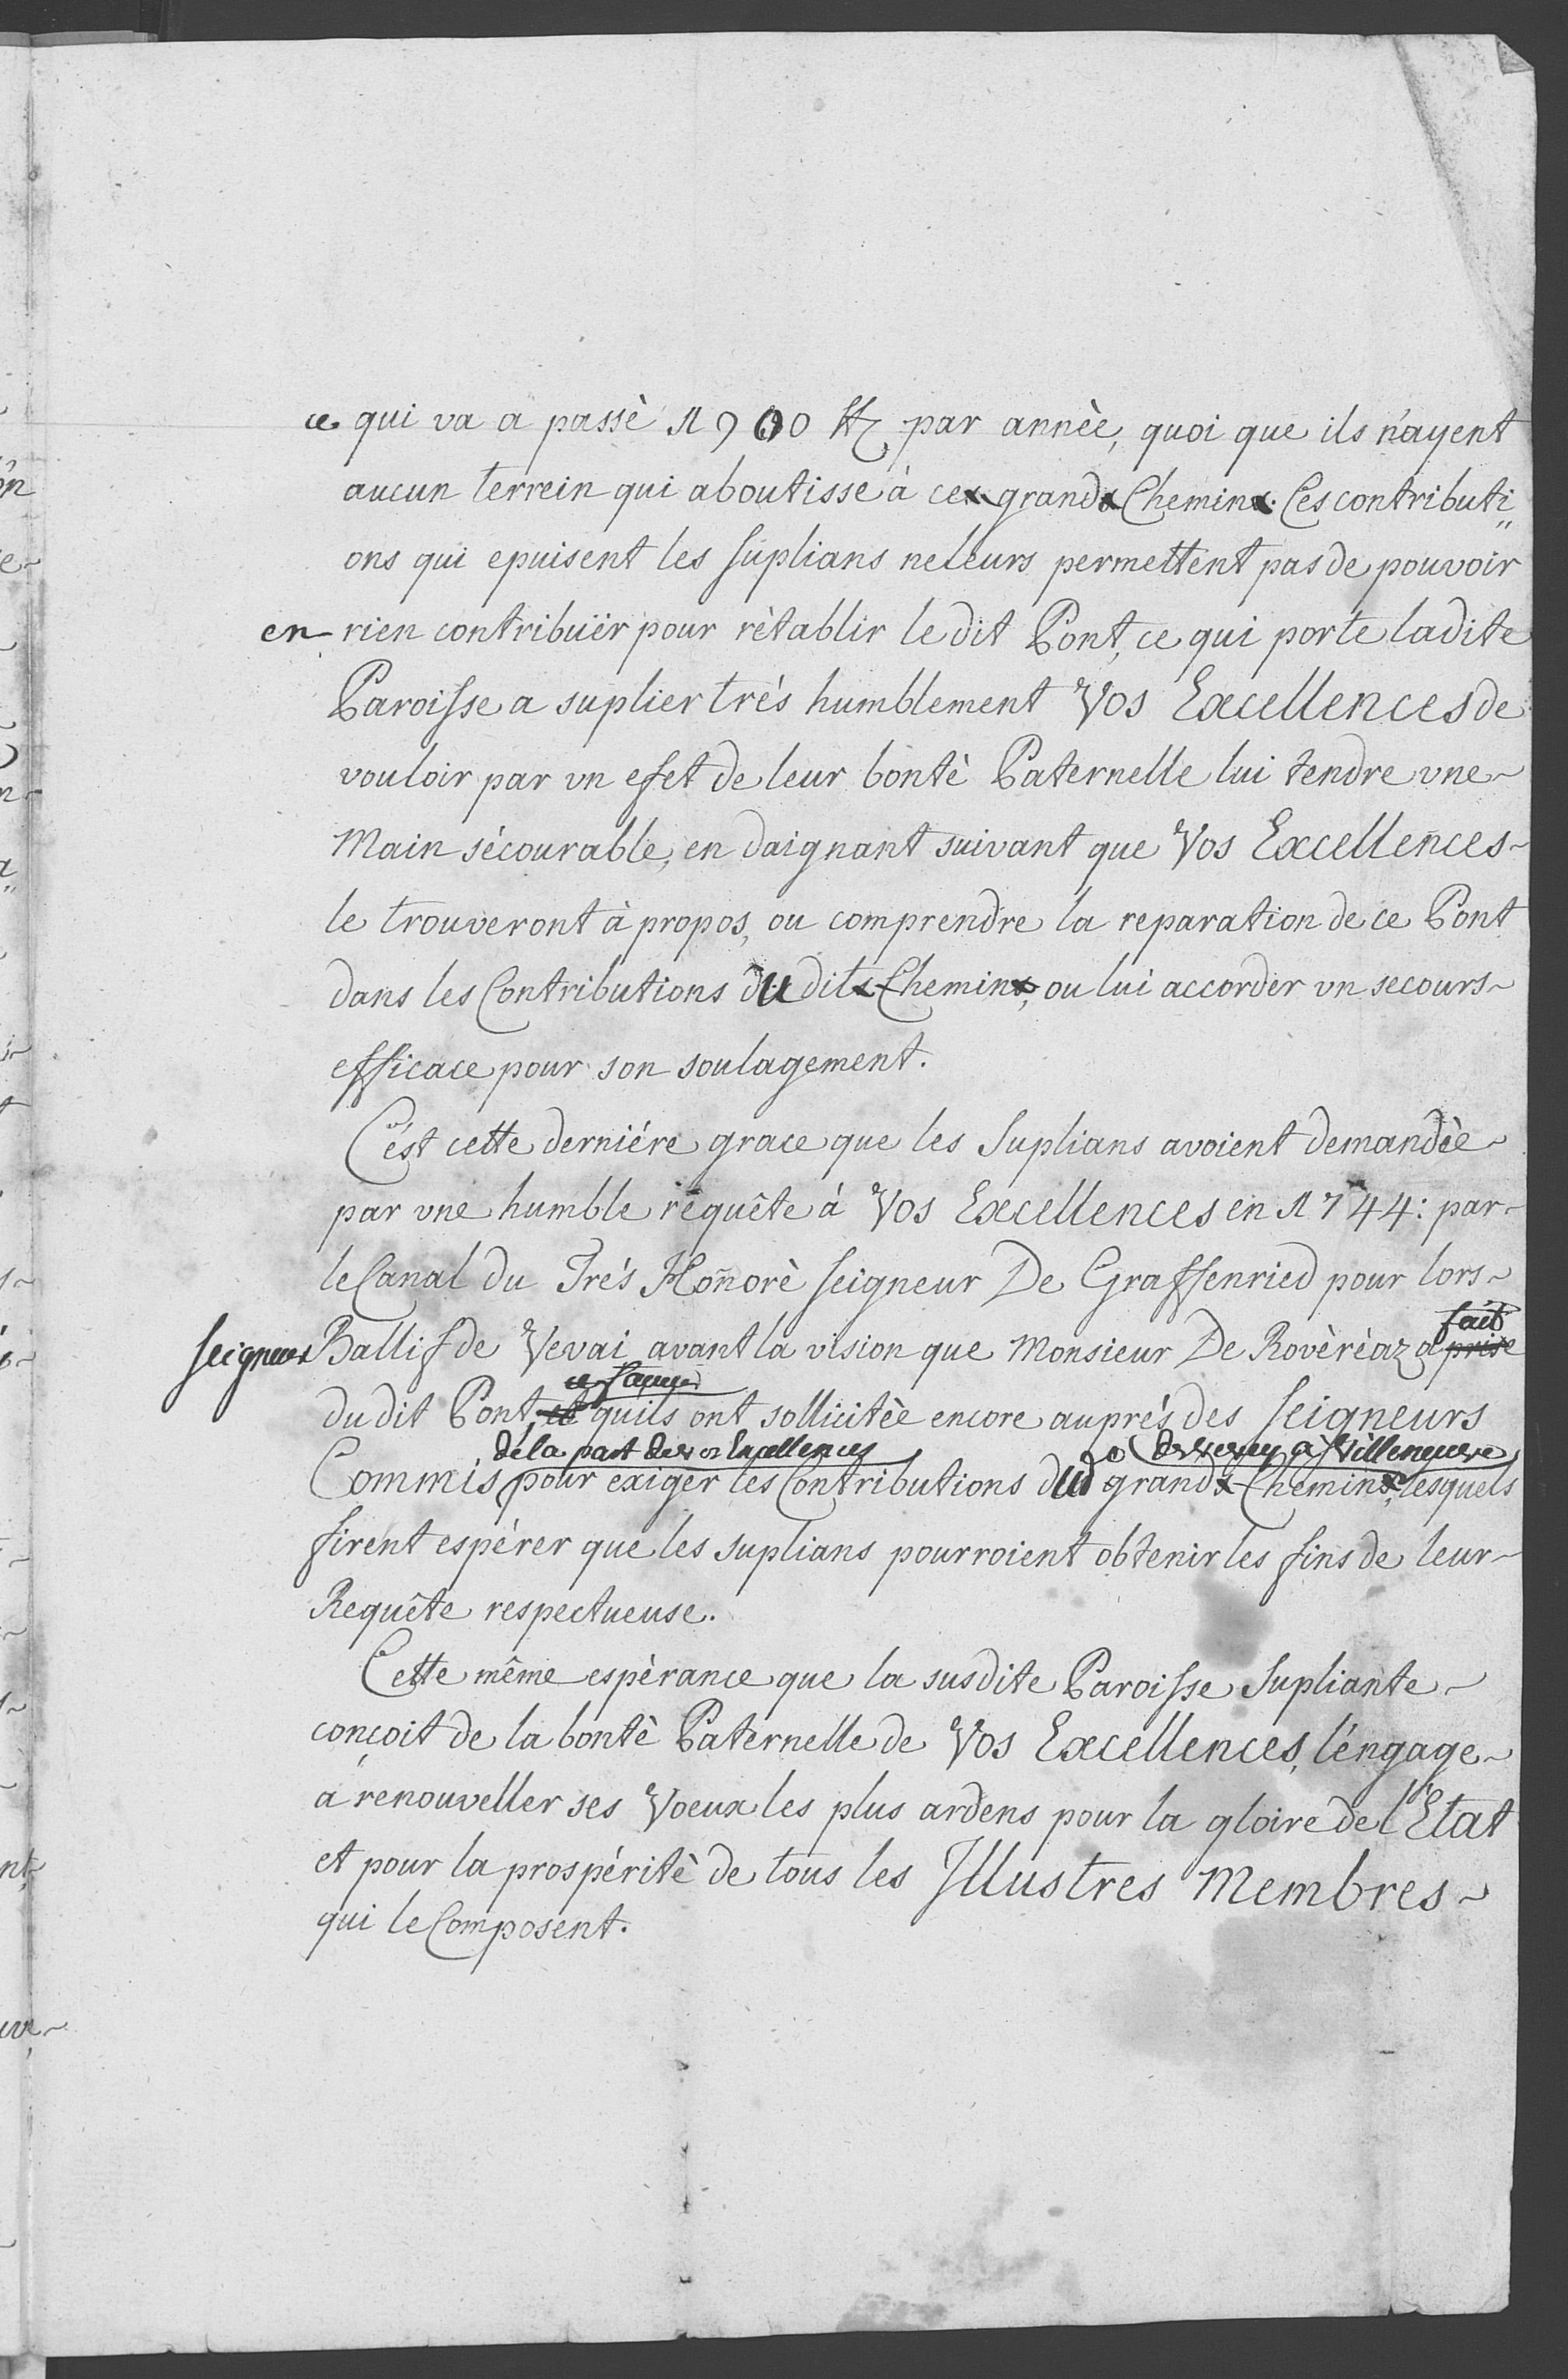 ce qui va a passè 1900 par annèe, quoi que ils n'ayent
aucun terrein qui aboutisse à ce grand Chemin. Ces contributi
ons qui epuisent les suplians ne leurs permettent pas de pouvoir
en rien contribuër pour rètablir le dit Pont, ce qui porte ladite
Paroisse a suplier trés humblement Vos Excellences de
vouloir par vn efet de leur bontè Paternelle lui tendre vne
Main sécourable, en daignant suivant que Vos Excellences
le trouveront à propos, ou comprendre la reparation de ce Pont
dans les Contributions du dit Chemin, ou lui accorder vn secours
efficace pour son soulagement.
C'ést cette derniére grace que les Suplians avoient demandèe
par vne humble réquête à Vos Excellences en 1744: par
le Canal du Trés Honorè Seigneur De Graffenried pour lors
Seigneur Ballif de Vevai avant la vision que Monsieur De Rovèrèaz a prise fait
du dit Pont, et quils ont sollicitèe encore auprés des Seigneurs
de la part de vos Excellences de vevey à Villeneuve
Commis pour exiger les Contributions dud grand Chemin, lesquels
firent espérer que les suplians pourroient obtenir les fins de leur
Requête respectueuse.
Cette même espèrance que la susdite Paroisse Supliante
conçoit de la bontè Paternelle de Vos Excellences, l'éngage
a renouveller ses Voeux les plus ardens pour la gloire de l'Etat
et pour la prospéritè de tous les Illustres Membres
qui le Composent.